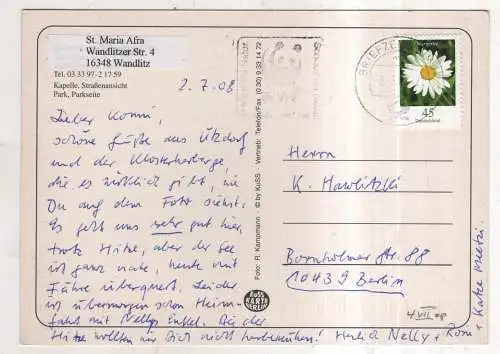 St. Maria Afra
Wandlitzer Str. 4
16348 Wandlitz
Tel. 03 33 97-2 17 59
Kapelle, Straßenansicht
Park, Parkseite
2.7.08
Lieber Konni,
schöne Grüße aus Ützdorf
und der Klosterherberge,
die es wirklich gibt, wie
Du auf dem Foto siehst.
Es geht uns sehr gut hier,
trotz Hitze, aber der See
ist ganz nahe, heute mit
Fähre überquert. Leider
ist übermorgen schon Heim-
fahrt mit Nellys Enkel. Bei der
Hitze wollten wir Dich nicht herbemühen! Herzlich Nelly + Rom +
Katze Mietzi.
Foto: R. Kampmann · © by KoSS · Vertrieb: Telefon/Fax (0 30) 9 33 14 72
KoSS
KARTE
BERLIN
BRIEFZE
45
Deutschland
Herrn
K. Hawlitzki
Bornholmer Str. 88
10439 Berlin
4.VII.08